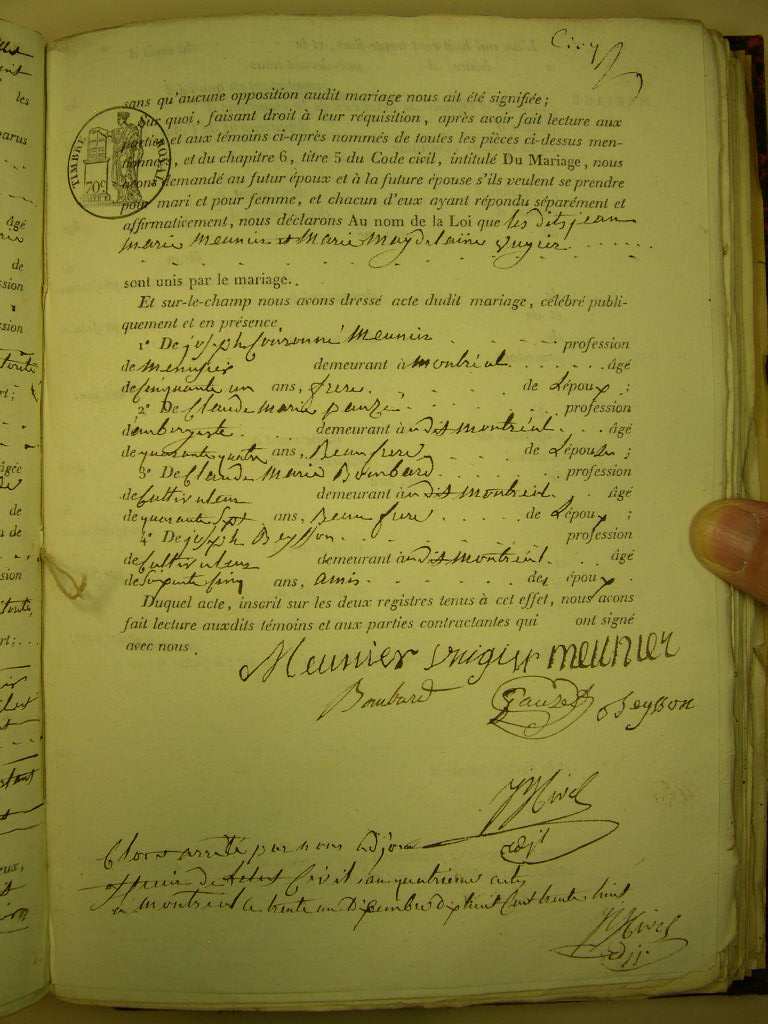 Cinq
sans qu'aucune opposition audit mariage nous ait été signifiée;
Sur quoi, faisant droit à leur réquisition, après avoir fait lecture aux
parties et aux témoins ci-après nommés de toutes les pièces ci-dessus men-
tionnées, et du chapitre 6, titre 5 du Code civil, intitulé Du Mariage, nous
avons demandé au futur époux et à la future épouse s'ils veulent se prendre
pour mari et pour femme, et chacun d'eux ayant répondu séparément et
affirmativement, nous déclarons Au nom de la Loi que les dits jean
marie Meunier et Marie Magdelaine
sont unis par le mariage.
Et sur-le-champ nous avons dressé acte dudit mariage, célébré publi-
quement et en présence
1° De joseph Couronné Meunier profession
de menusier demeurant à montréal âgé
de Cinquante un ans, frere de L'époux;
2° De Claude Marie pauze profession
d'aubergiste demeurant à dit montréal. âgé
de quarante quatre ans, Beaufrere de L'époux;
3° De Claude Marie Bombard profession
de Cultivateur demeurant à dit montréal. âgé
de quarante Sept ans, Beau frere de L'époux;
4° De joseph Beysson profession
de Cultivateur demeurant à dit montréal. âgé
de Soixante Cinq ans, amis de époux
Duquel acte, inscrit sur les deux registres tenus à cet effet, nous avons
fait lecture auxdits témoins et aux parties contractantes qui ont signé
avec nous.
Meunier meunier
Bombard Pauze beysson
adjt
Clos et arrété par nous adjoint
officier de létat Civil au quatrieme
a montréal ce trente un Décembre dix huit Cent trente huit
adjt
TIMBRE ROYAL
70c